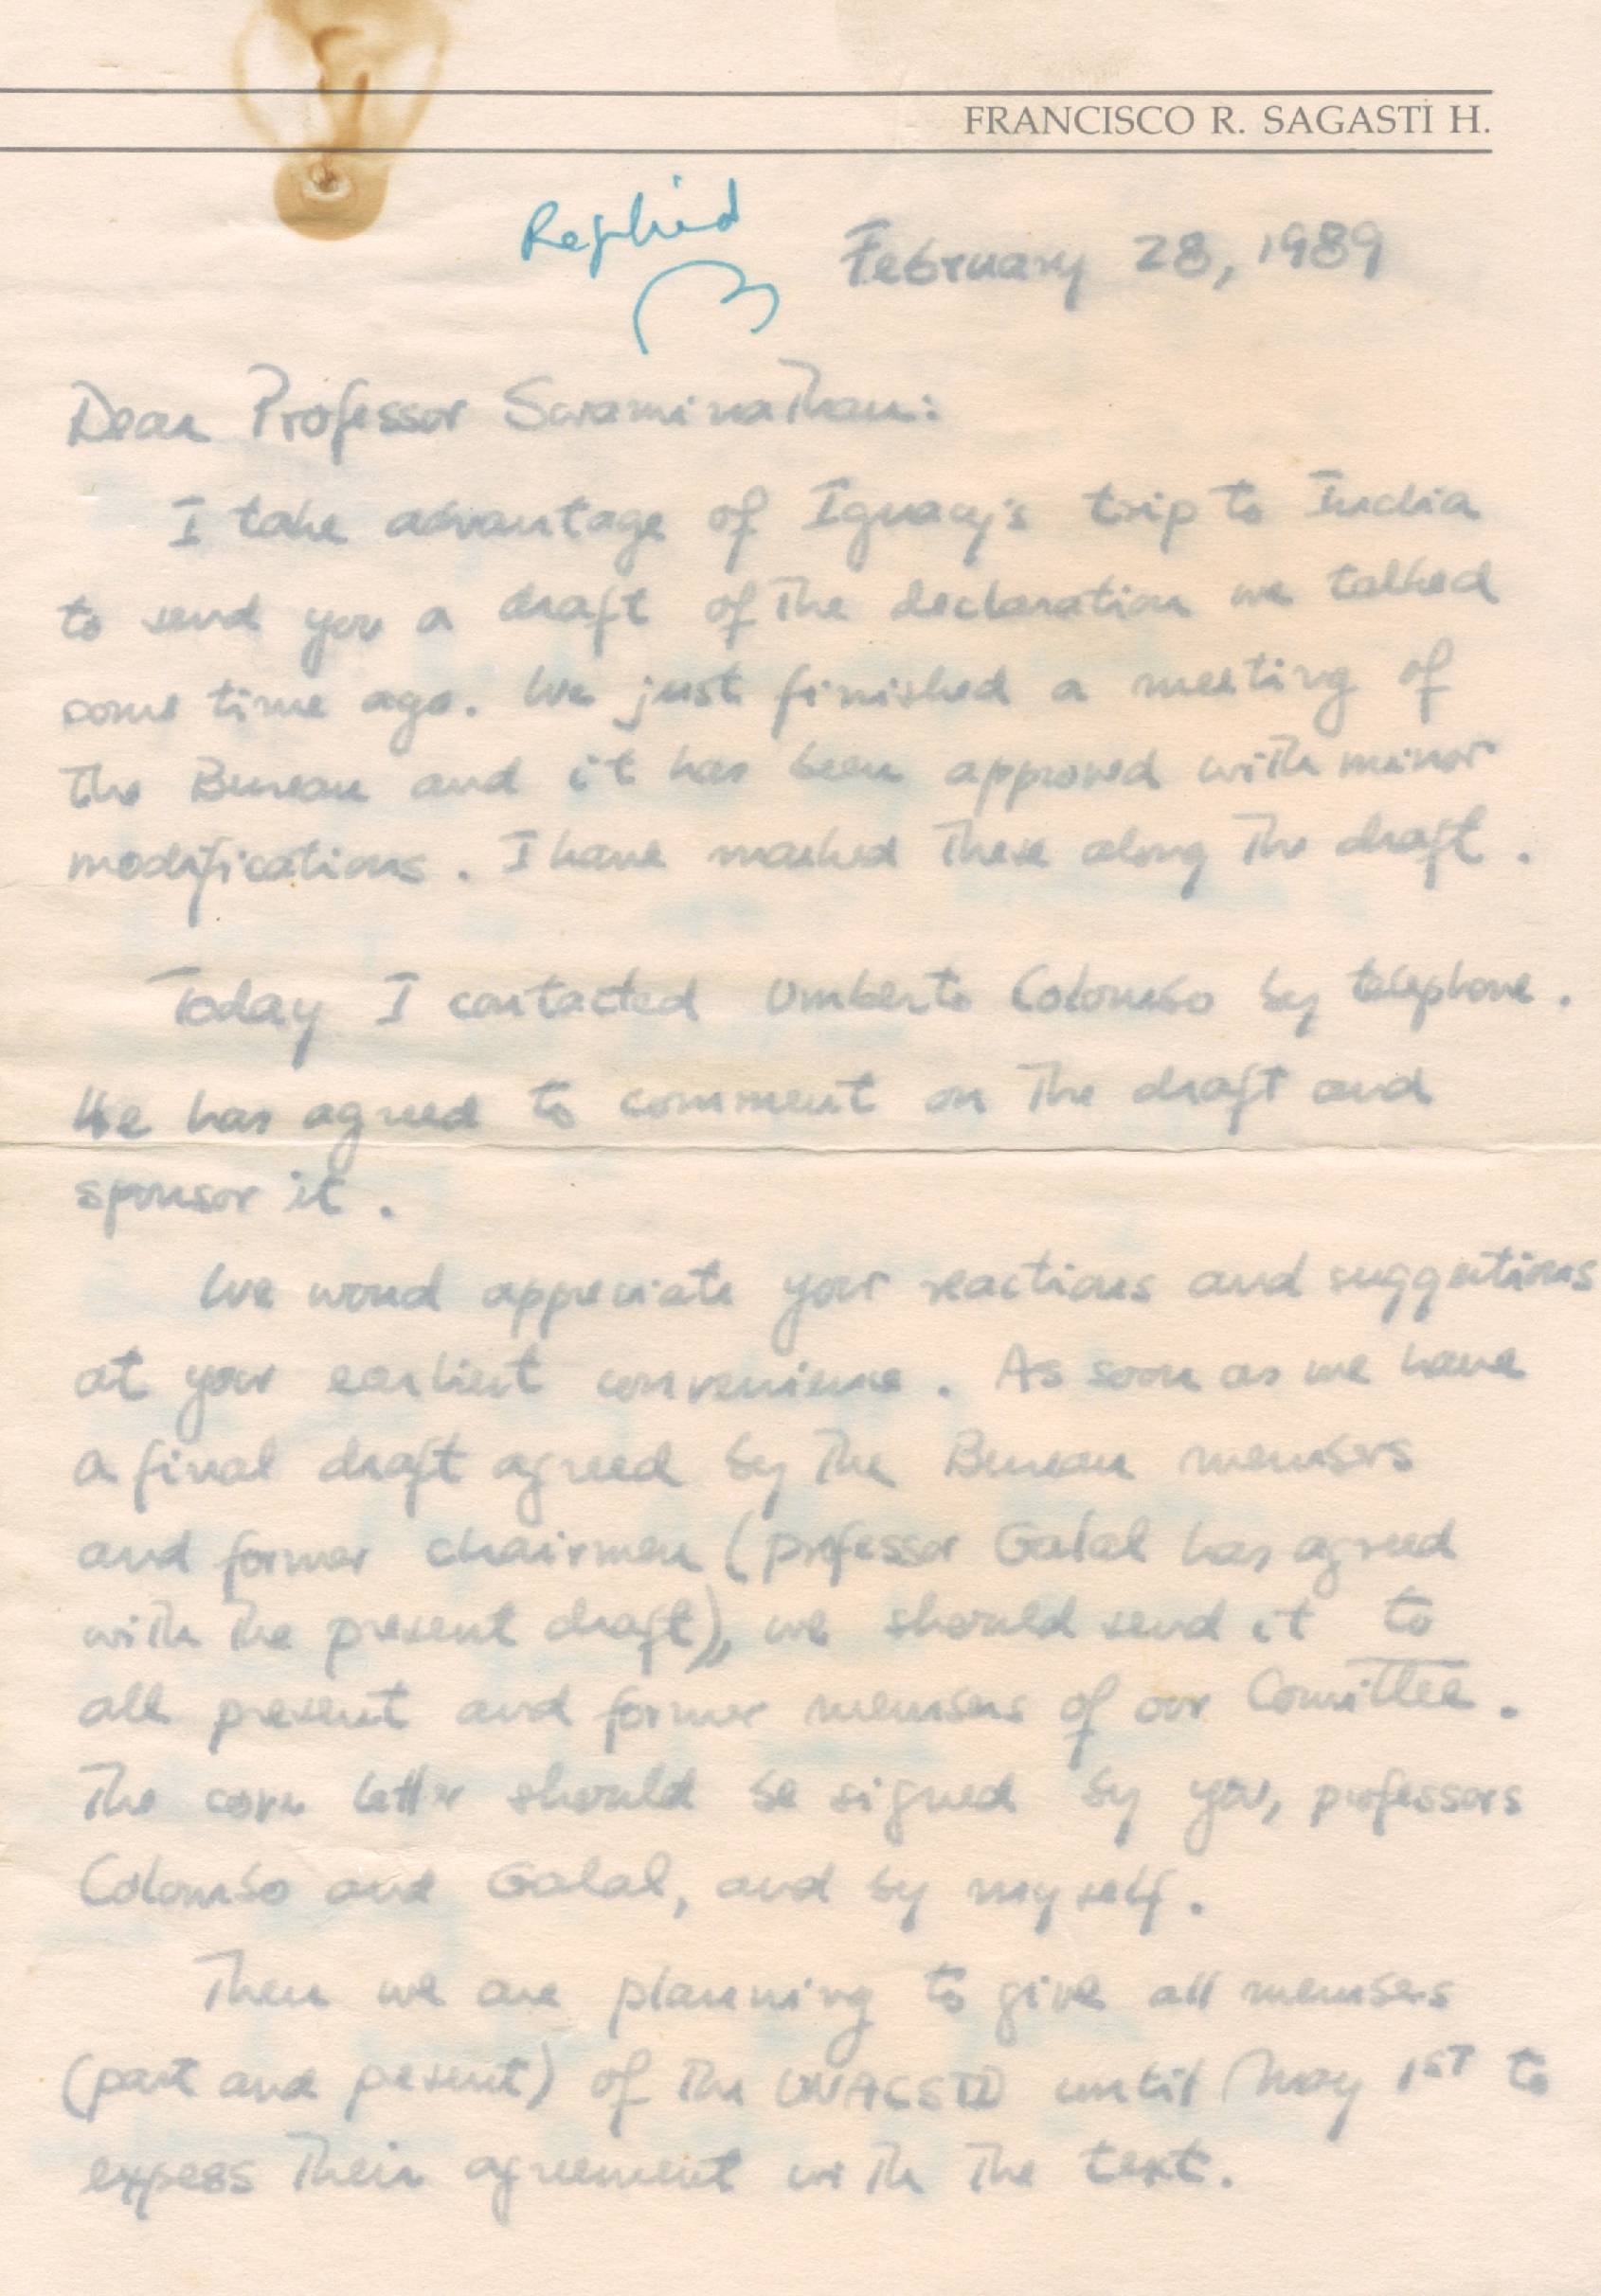 FRANCISCO R. SAGASTI H.
Replied
February 28, 1989
Dear Professor Swaminathan:
I take advantage of Ignacy's trip to India
to send you a draft of the declaration we talked
some time ago. We just finished a meeting of
the Bureau and it has been approved with minor
modifications. I have marked these along the draft.
Today I contacted Umberto Colombo by telephone.
He has agreed to comment on the draft and
sponsor it.
We woud appreciate your reactions and suggestions
at your earliest convenience. As soon as we have
a final draft agreed by the Bureau members
and former chairmen (professor Galal has agreed
with the present draft), we should send it to
all present and former members of our Comittee.
The cover letter should be signed by you, professors
Colombo and Galal, and by myself.
Then we are planning to give all members
(past and present) of the UNACSTD until May 1ST to
express their agreement with the text.